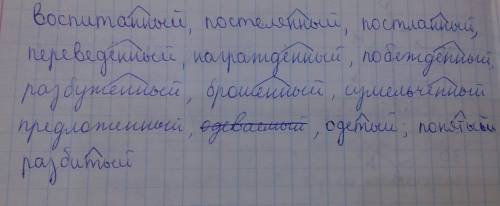 воспитанный, постелянный, постланный,
переведенный, награжденный, побежденный,
разбуженный, брошенный, измельченный
предложенный, одеваемый, одетый; понятый
разбитый